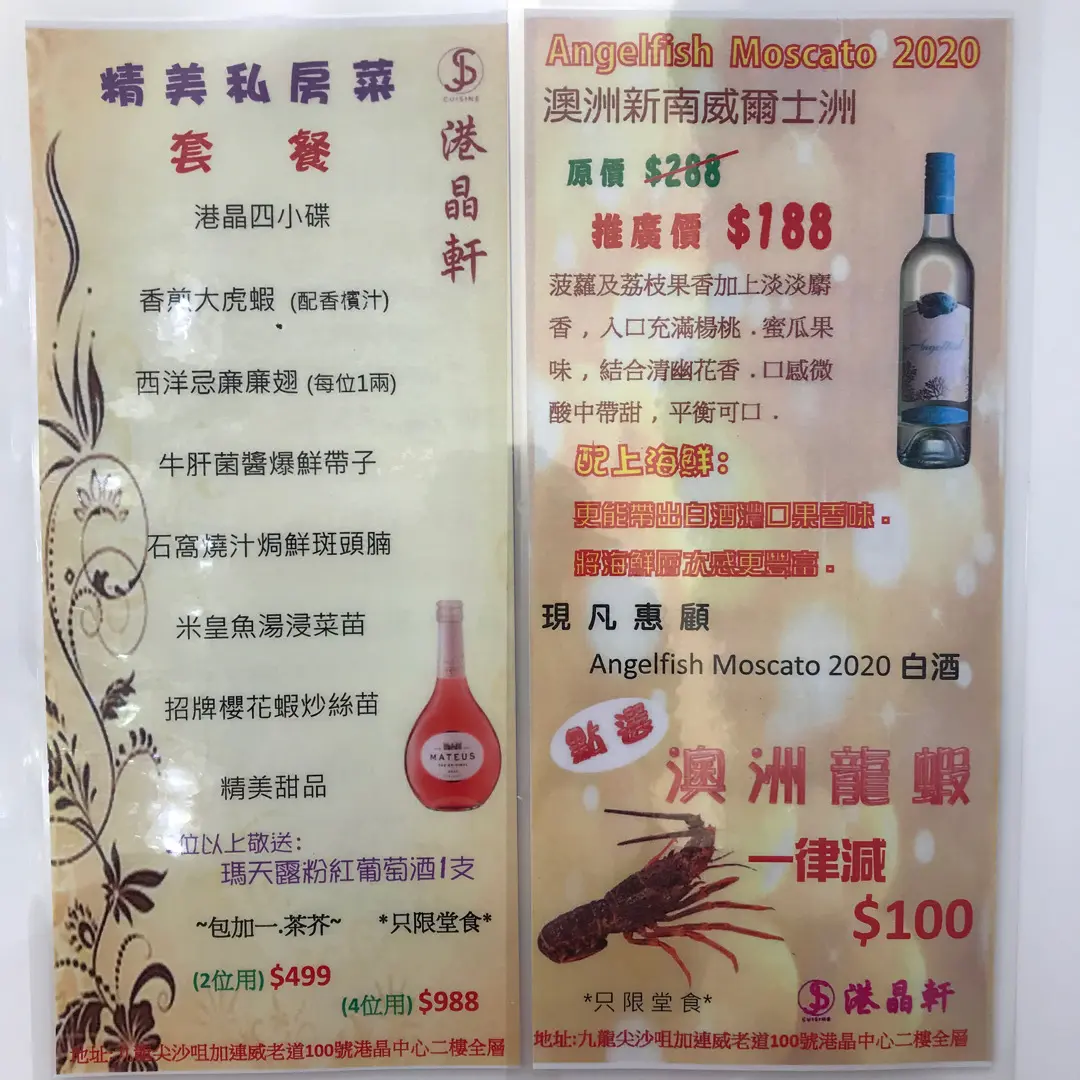 精美私房菜
套餐
CUISINE
港晶軒
港晶四小碟
香煎大虎蝦 (配香檳汁)
西洋忌廉廉翅 (每位1兩)
牛肝菌醬爆鮮帶子
石窩燒汁焗鮮斑頭腩
米皇魚湯浸菜苗
招牌櫻花蝦炒絲苗
精美甜品
MATEUS
位以上敬送:
瑪天露粉紅葡萄酒1支
~包加一.茶芥~ *只限堂食*
(2位用) $499
(4位用) $988
地址:九龍尖沙咀加連威老道100號港晶中心二樓全層
Angelfish Moscato 2020
澳洲新南威爾士洲
原價 $288
推廣價 $188
菠蘿及荔枝果香加上淡淡麝
香，入口充滿楊桃．蜜瓜果
味，結合清幽花香．口感微
酸中帶甜，平衡可口．
Angelfish
配上海鮮:
更能帶出白酒濃口果香味．
將海鮮層次感更豐富．
現凡惠顧
Angelfish Moscato 2020 白酒
點選
澳洲龍蝦
一律減
$100
*只限堂食*
CUISINE
港晶軒
地址:九龍尖沙咀加連威老道100號港晶中心二樓全層